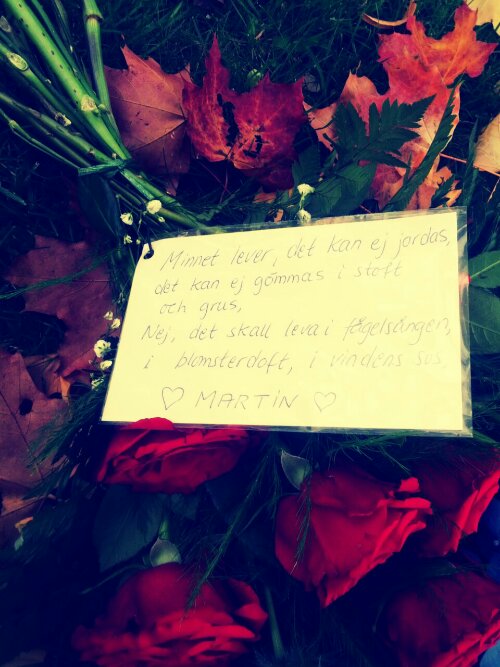 Minnet lever, det kan ej jordas,
det kan ej gömmas i stoft
och grus,
Nej, det skall leva i fågelsången,
i blomsterdoft, i vindens sus
♡ MARTIN ♡